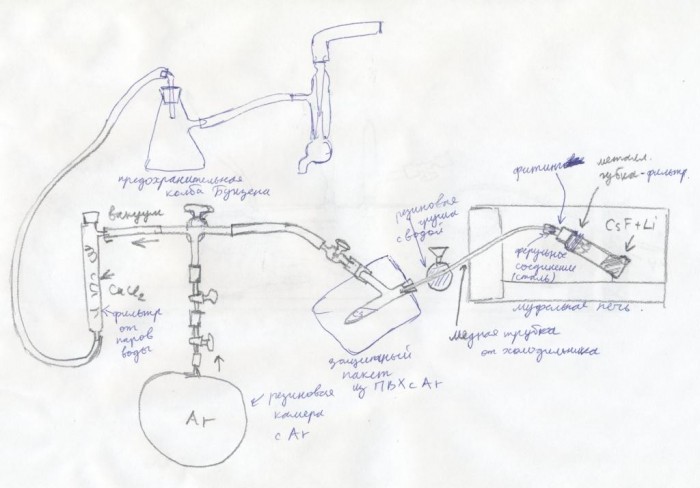 предохранительная
колба Бунзена
вакуум
CaCl2
фильтр
от
паров
воды
Ar
резиновая
камера
с Ar
защитный
пакет
из ПВХ с Ar
резиновая
груша
с водой
фитинг
металл.
губка-фильтр.
CsF+Li
соединение
(сталь)
муфельная печь.
медная трубка
от холодильника